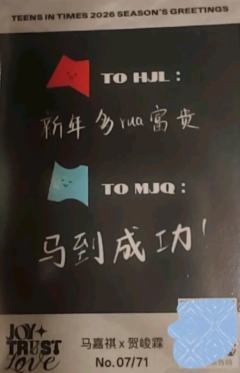 TEENS IN TIMES 2026 SEASON'S GREETINGS
TO HJL :
新年多rua富贵
TO MJQ :
马到成功!
JOY
TRUST
Love
马嘉祺 x 贺峻霖
No.07/71